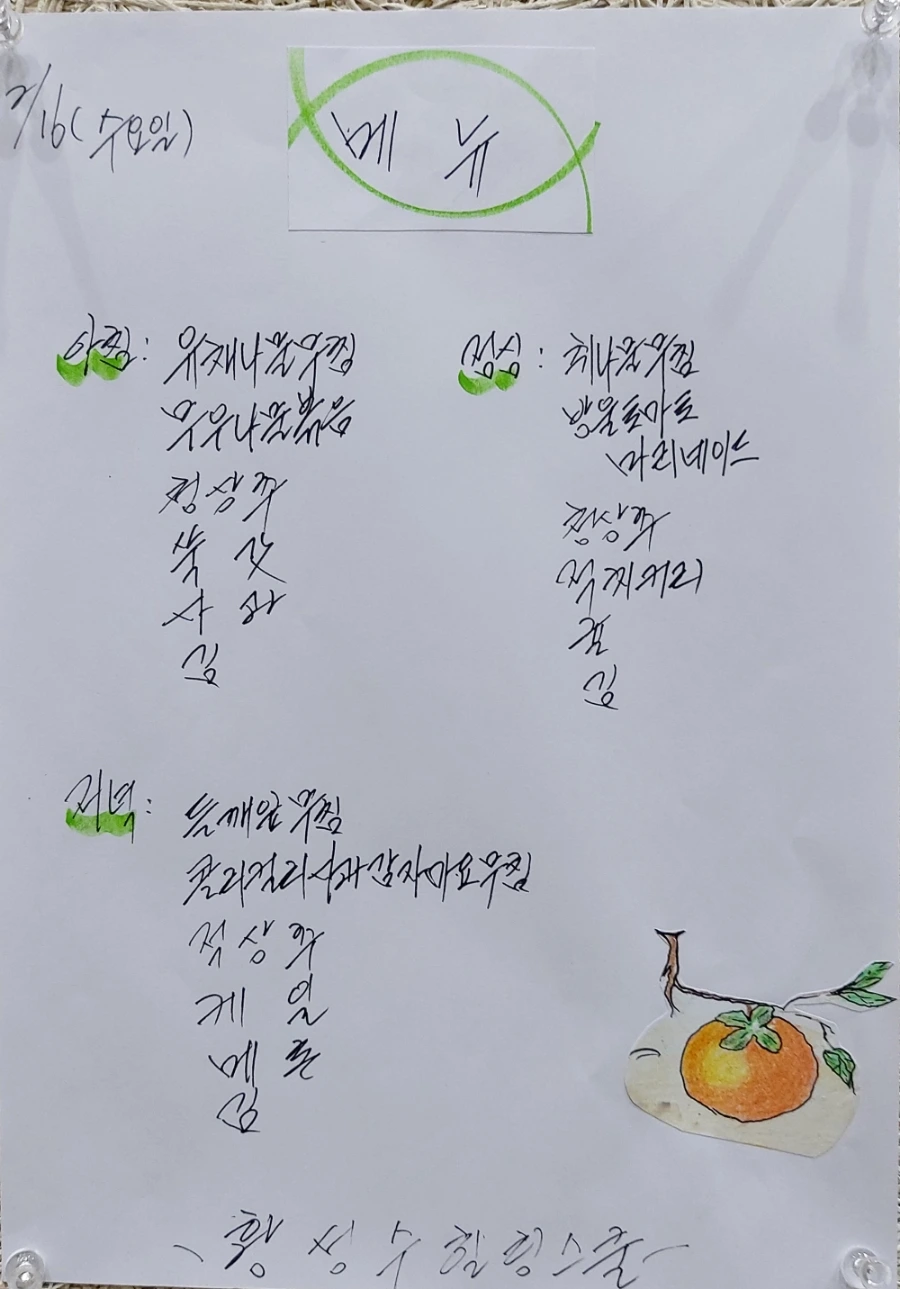 2/16(수요일)
메뉴
아침: 유채나물무침
무우나물볶음
청상추
쑥갓
사과
김
점심: 취나물무침
방울토마토
마리네이드
청상추
적치커리
귤
김
저녁: 들깨잎무침
콜리컬리사과감자마요무침
적상추
케일
메론
김
- 황성수힐링스쿨 -